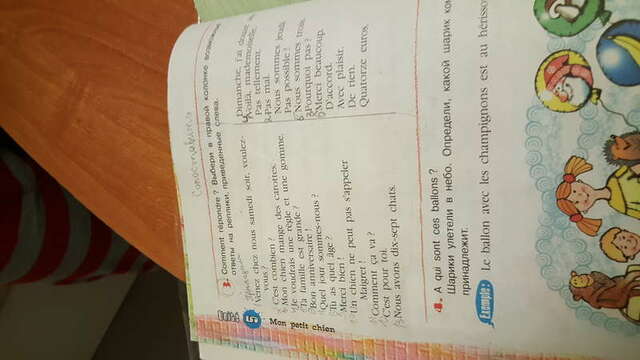 3. Comment répondre? Выбери в правой колонке возможные
ответы на реплики, приведённые слева.
Venez chez nous samedi soir, voulez-
vous?
C'est combien?
Mon chien mange des carottes.
Je voudrais une règle et une gomme.
Ta famille est grande?
Bon anniversaire!
Quel jour sommes-nous?
Tu as quel âge?
Merci bien!
Un chien ne peut pas s'appeler
Maigret
Comment ça va?
C'est pour toi.
Nous avons dix-sept chats.
Dimanche, j'ai
Voilà, mademoiselle.
Pas tellement.
Pas mal.
Nous sommes jeudi.
Pas possible!
Nous sommes trois.
Pourquoi pas?
Merci beaucoup.
D'accord.
Avec plaisir.
De rien.
Quatorze euros.
4. A qui sont ces ballons?
Шарики улетели в небо. Определи, какой шарик ком
принадлежит.
Exemple: Le ballon avec les champignons est au hérisso
Mon petit chien